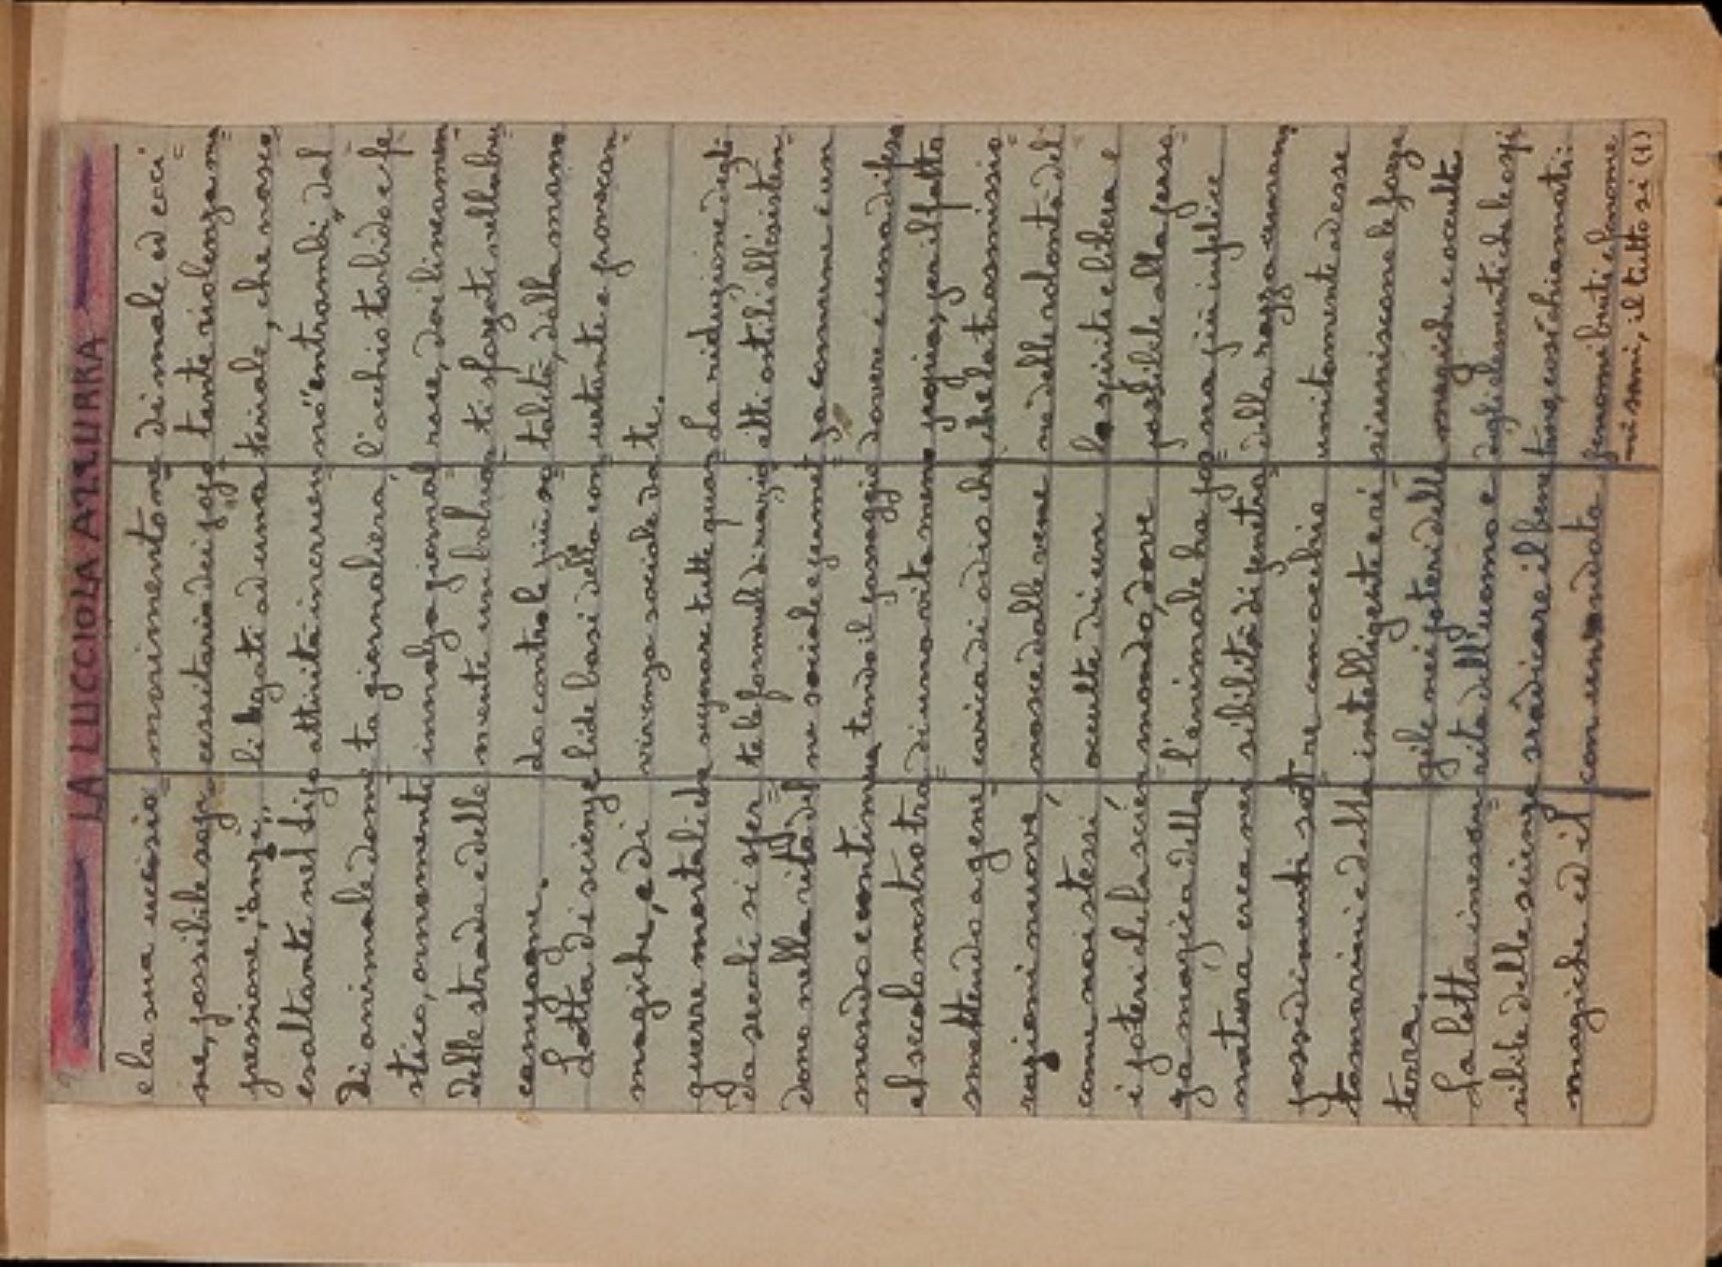 LA LUCCIOLA AZZURRA
e la sua uccisio=
ne, possibile sop=
pressione, "anzi,,
esaltante nel tipo
di animale dome=
stico, ornamento
delle strade e delle
campagne.
Lotta di scienze
magiche, e di
guerre mortali che
da secoli si
dono nella vita del
mondo e continua
el secolo nostro tra=
smettendo a gene=
razioni nuove
come noi stessi
i poteri della scien=
za magica della
natura crea nei
possedimenti sot=
tomarini e della
terra.
La lotta
sibile delle scienze
magiche ed il
movimento ne=
cessitario dei popo=
li legati ad una
attività
ta giornaliera,
innalza giornal=
mente un baluar=
do contro le più so=
lide basi della con=
vivenza sociale da
segnare tutte quan=
te le formule di
ne sociale e
tendo il passaggio
di una vita meno
carica di odio che
nasce dalle vene
occulte di un
mondo, dove
l'animale ha pos=
sibilità di pentra=
re con occhio
intelligente e
gile nei poteri della
vita dell'uomo e
sradicare il bene
con un'ondata
di male ed ecci=
tante violenza ma=
teriale, che nasco=
no "entrambi,, dal=
l'occhio torbido e fe=
roce, dai lineamen=
ti sforzati nella bru=
talità, della mano
urtante e provocan=
te.
La riduzione degli
atti ostili all'esisten=
za comune è un
dovere e una difesa
propria, per il fatto
che la trasmissio=
ne delle volontà del=
lo spirito e libera e
possibile alla
ma più infelice
della razza umana,
unitamente ad esse
si uniscono le forze
magiche e occulte
degli elementi che le
ture, così chiamati:
fenomeni bruti e fenome=
ni sani, il tutto si (1)